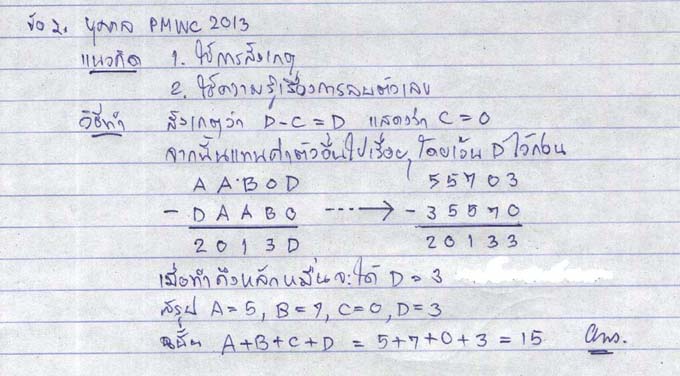 ข้อ 2. บุคคล PMWC 2013
แนวคิด 1. ใช้การสังเกต
2. ใช้ความรู้เรื่องการลบตัวเลข
วิธีทำ สังเกตว่า D - C = D แสดงว่า C = 0
จากนั้นแทนค่าตัวอื่นไปเรื่อยๆ โดยเว้น D ไว้ก่อน
A A B 0 D 5 5 7 0 3
- D A A B 0 ----> - 3 5 5 7 0
2 0 1 3 D 2 0 1 3 3
เมื่อทำถึงหลักหมื่นจะได้ D = 3
สรุป A = 5, B = 7, C = 0, D = 3
ดังนั้น A + B + C + D = 5 + 7 + 0 + 3 = 15 Ans.